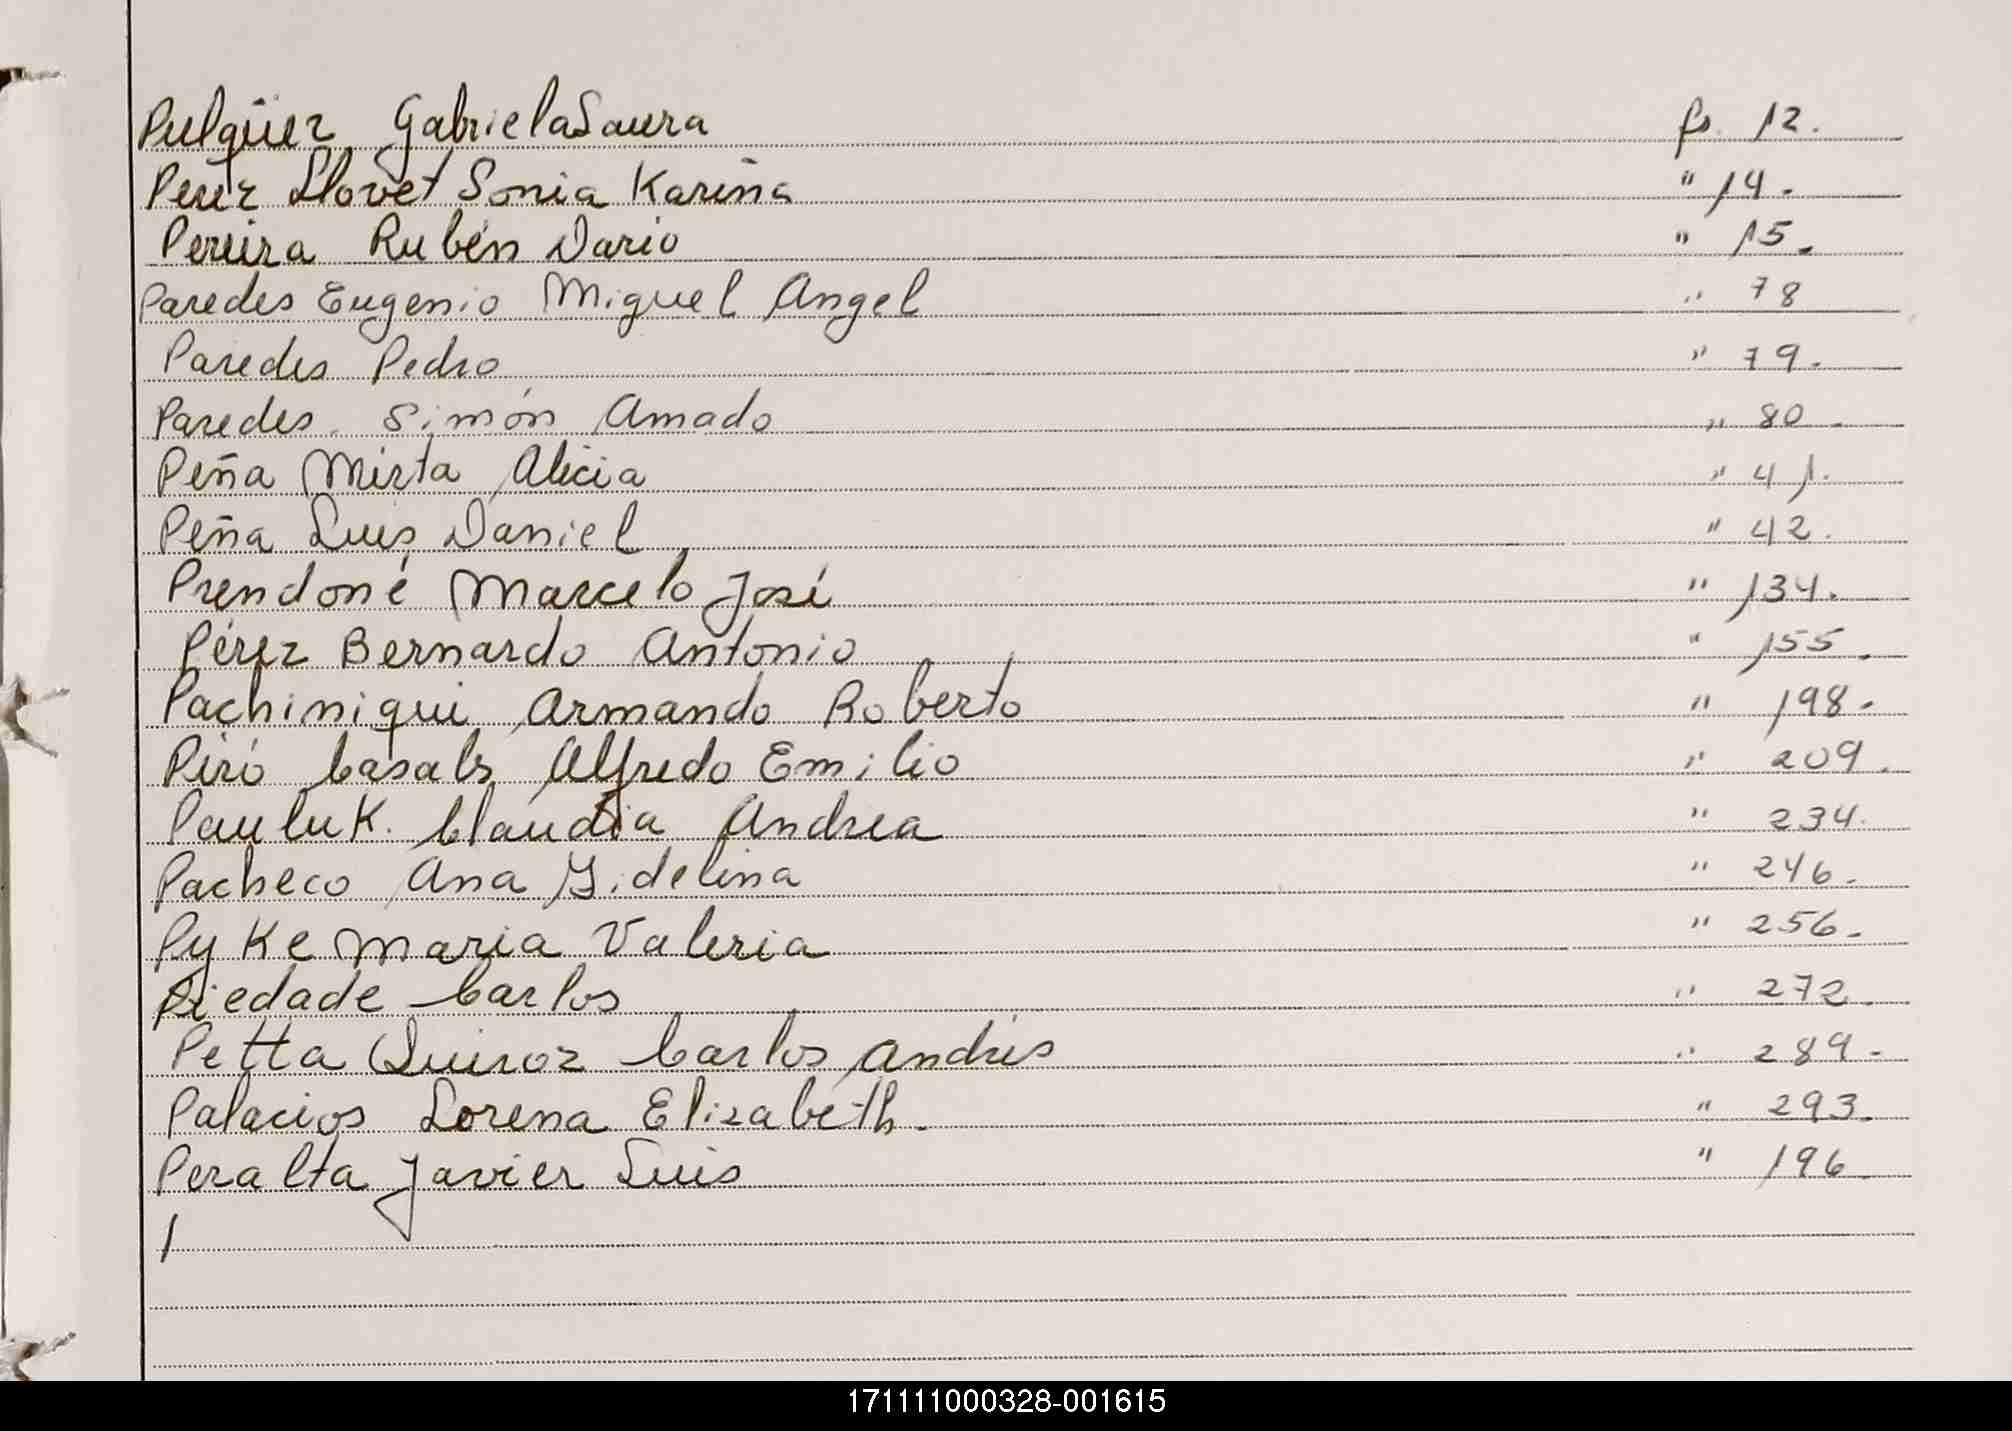 Pulgüer Gabriela Laura fs. 12.
Perez Llovet Sonia Karina " 14.
Pereira Rubén Dario " 15.
Paredes Eugenio Miguel Angel " 78
Paredes Pedro " 79.
Paredes. Simón Amado " 80.
Peña Mirta Alicia " 41.
Peña Luis Daniel " 42.
Prendoné Marcelo José " 134.
Pérez Bernardo Antonio " 155.
Pachiniqui Armando Roberto " 198.
Piró Casals Alfredo Emilio " 209.
Pauluk. Claudia Andrea " 234.
Pacheco Ana Y.idelina " 246.
Pyke Maria Valeria " 256.
Piedade Carlos " 272.
Petta Quiroz Carlos Andrés " 289.
Palacios Lorena Elizabeth. " 293.
Peralta Javier Luis " 196
171111000328-001615